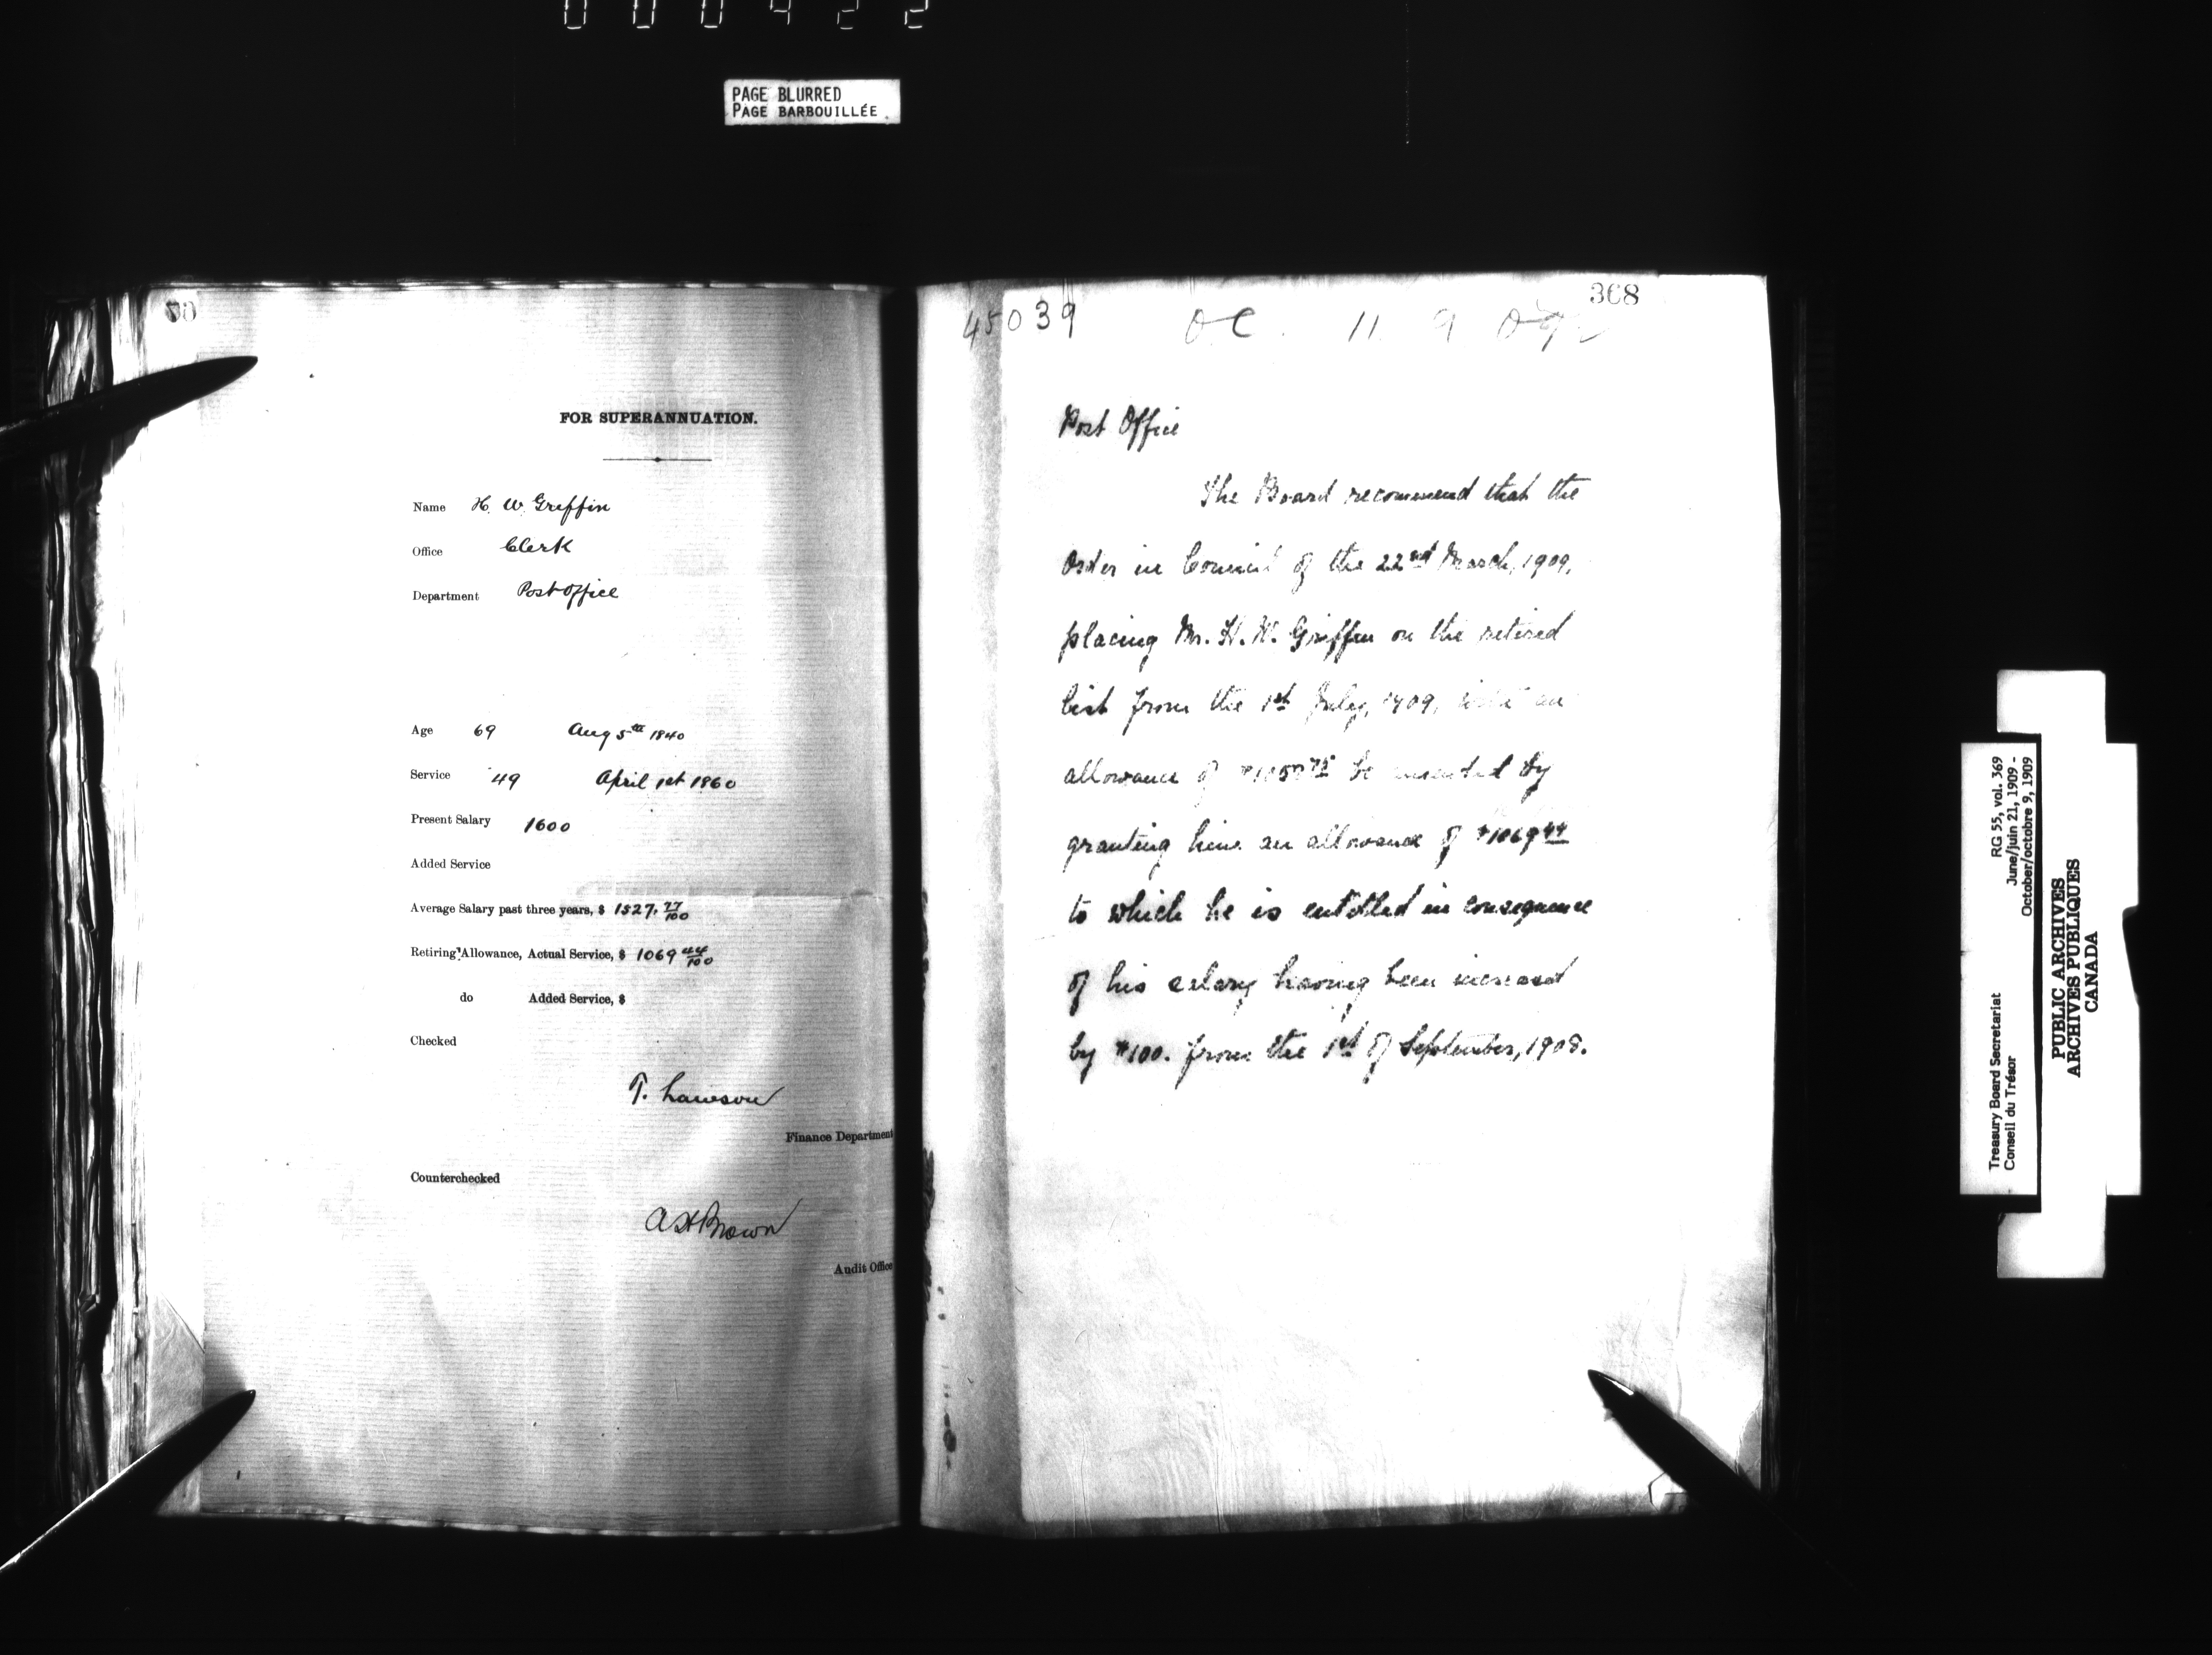 000422
PAGE BLURRED
PAGE BARBOUILLÉE
FOR SUPERANNUATION.
Name H. W. Griffin
Office Clerk
Department Post Office
Age 69 Aug 5th 1840
Service 49 April 1st 1860
Present Salary 1600
Added Service
Average Salary past three years, $ 1527.77/100
Retiring Allowance, Actual Service, $ 1069 44/100
do Added Service, $
Checked
T. Lawson
Finance Department
Counterchecked
A H Brown
Audit Office
368
45039 O.C. 11 9
Post Office
The Board recommend that the
Order in Council of the 22nd March, 1909,
placing Mr. H. W. Griffin on the retired
list from the 1st July, 1909, with an
allowance of be amended by
granting him an allowance of $1069 44
to which he is entitled in consequence
of his salary having been increased
by $100. from the 1st of September, 1908.
Treasury Board Secretariat RG 55, vol. 369
Conseil du Trésor June/juin 21, 1909 -
October/octobre 9, 1909
PUBLIC ARCHIVES
ARCHIVES PUBLIQUES
CANADA